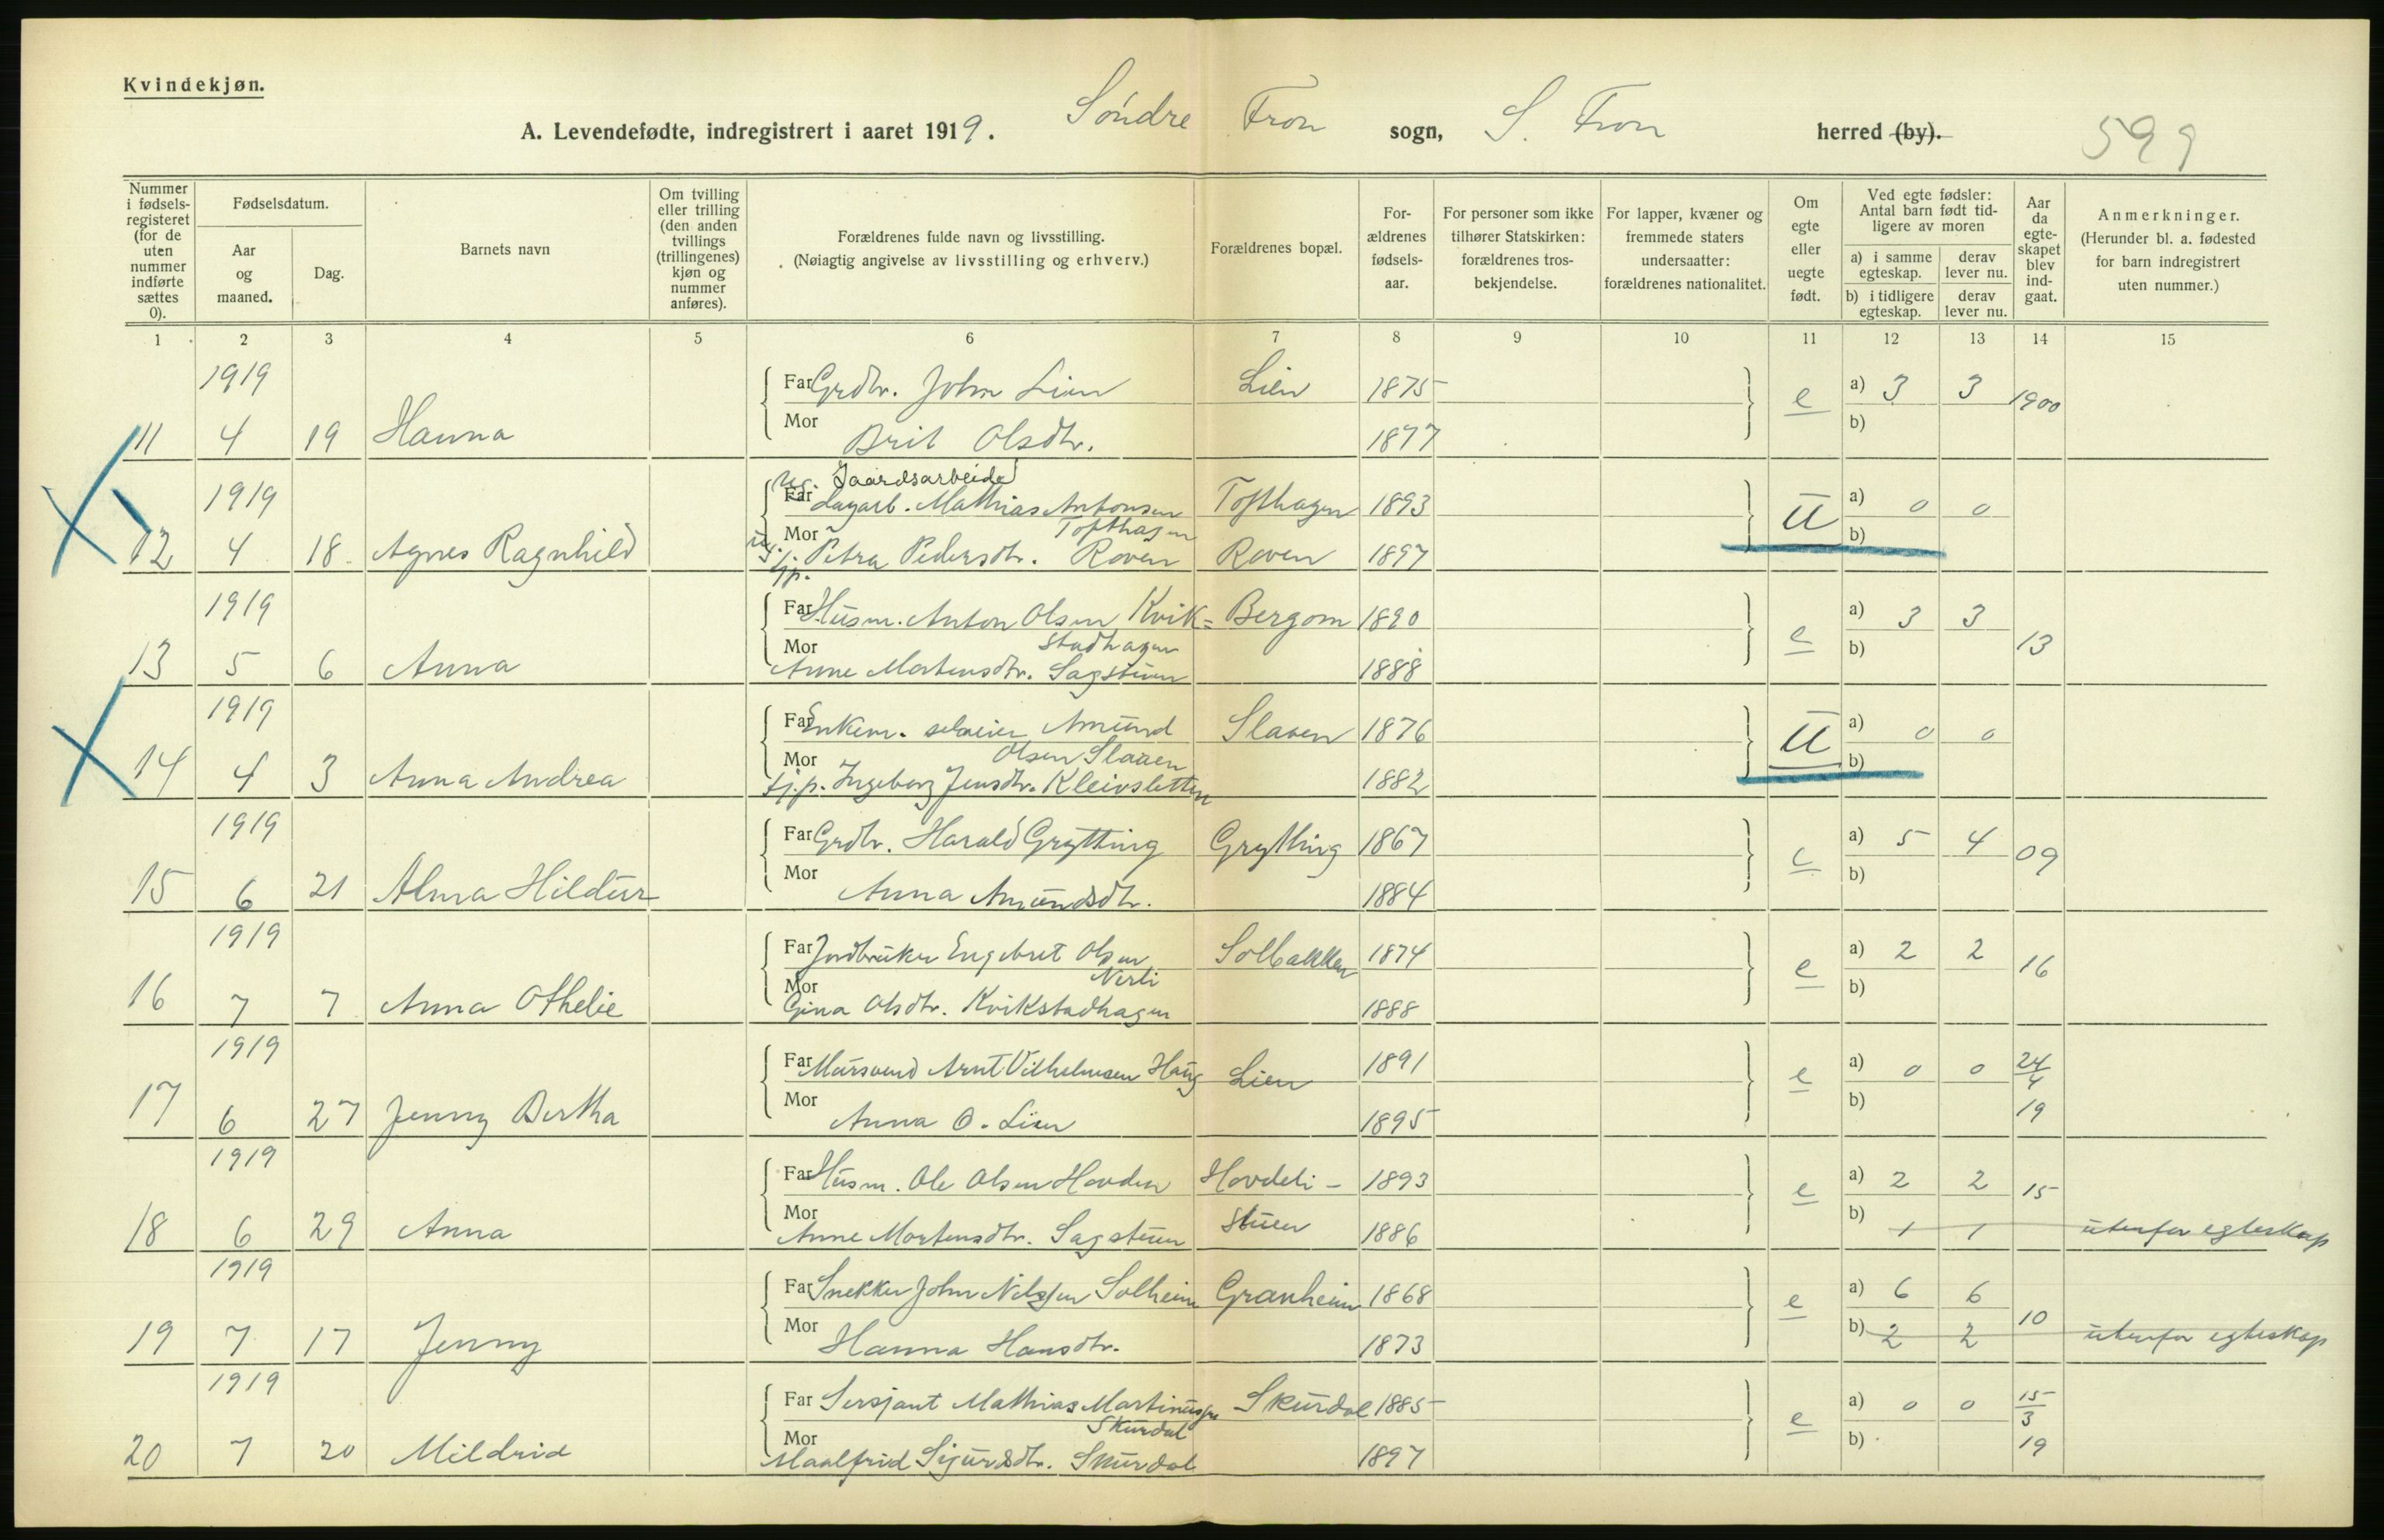 Kvindekjøn.
A. Levendefødte, indregistrert i aaret 1919. Søndre Fron sogn, S. Fron herred (by). 599
Nummer i fødselsregisteret (for de uten nummer indførte sættes 0).
Fødselsdatum.
Aar og maaned.
Dag.
Barnets navn
Om tvilling eller trilling (den anden tvillings (trillingenes) kjøn og nummer anføres).
Forældrenes fulde navn og livsstilling.
(Nøiagtig angivelse av livsstilling og erhverv.)
Forældrenes bopæl.
Forældrenes fødselsaar.
For personer som ikke tilhører Statskirken: forældrenes trosbekjendelse.
For lapper, kvæner og fremmede staters undersaatter: forældrenes nationalitet.
Om egte eller uegte født.
Ved egte fødsler: Antal barn født tidligere av moren
a) i samme egteskap. derav lever nu.
b) i tidligere egteskap. derav lever nu.
Aar da egteskapet blev indgaat.
Anmerkninger.
(Herunder bl. a. fødested for barn indregistrert uten nummer.)
1 2 3 4 5 6 7 8 9 10 11 12 13 14 15
1919 Far Grdbr. John Lien Lien 1875 e a) 3 3 1900
11 4 19 Hanna Mor Brit Olsdtr. 1877 b)
ug. Gaardsarbeider
1919 Far Dagarb. Mathias Antonsen Tofthagen 1893 U a) 0 0
Tofthagen
12 4 18 Agnes Ragnhild Mor ug. tjp. Petra Pedersdtr. Roven Roven 1897 b)
1919 Far Husm. Anton Olsen Kvik= Bergom 1890 e a) 3 3 13
stadhagen
13 5 6 Anna Mor Anne Mortensdtr. Sagstuen 1888 b)
1919 Far Enkem. selveier Amund Slaaen 1876 U a) 0 0
Olsen Slaaen
14 4 3 Anna Andrea Mor tj.p. Ingeborg Jensdtr. Kleivsletten 1882 b)
1919 Far Grdbr. Harald Grytting Grytting 1867 e a) 5 4 09
15 6 21 Alma Hildur Mor Anna Amundsdtr. 1884 b)
1919 Far Jordbruker Engebret Olsen Solbakken 1874 e a) 2 2 16
Nerli
16 7 7 Anna Othelie Mor Gina Olsdtr. Kvikstadhagen 1888 b)
1919 Far Mursvend Arnt Vilhelmsen Haug Lien 1891 e a) 0 0 24/4
17 6 27 Jenny Bertha Mor Anna O. Lien 1895 b) 19
1919 Far Husm. Ole Olsen Hovden Hovdeli- 1893 e a) 2 2 15
18 6 29 Anna Mor Anne Mortensdtr. Sagstuen stuen 1886 b) 1 1 utenfor egteskap
1919 Far Snekker John Nilssen Solheim Granheim 1868 e a) 6 6 10
19 7 17 Jenny Mor Hanna Hansdtr. 1873 b) 2 2 utenfor egteskap
1919 Far Sersjant Mathias Martinussen Skurdal 1885 e a) 0 0 15/3
Skurdal
20 7 20 Mildrid Mor Maalfrid Sigurdsdtr. Skurdal 1897 b) 19